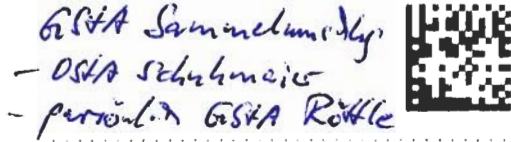 GStA Sammelumschlg.
- OStA Schuhmaier
- persönlich GStA Röttle